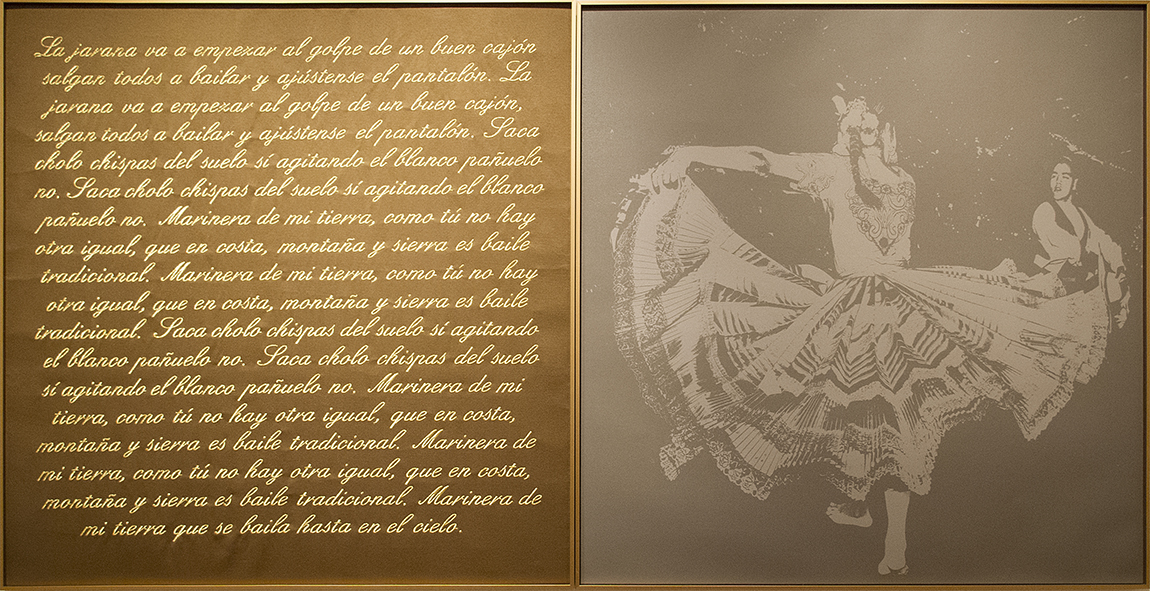 La jarana va a empezar al golpe de un buen cajón
salgan todos a bailar y ajústense el pantalón. La
jarana va a empezar al golpe de un buen cajón,
salgan todos a bailar y ajústense el pantalón. Saca
cholo chispas del suelo sí agitando el blanco pañuelo
no. Saca cholo chispas del suelo sí agitando el blanco
pañuelo no. Marinera de mi tierra, como tú no hay
otra igual, que en costa, montaña y sierra es baile
tradicional. Marinera de mi tierra, como tú no hay
otra igual, que en costa, montaña y sierra es baile
tradicional. Saca cholo chispas del suelo sí agitando
el blanco pañuelo no. Saca cholo chispas del suelo
sí agitando el blanco pañuelo no. Marinera de mi
tierra, como tú no hay otra igual, que en costa,
montaña y sierra es baile tradicional. Marinera de
mi tierra, como tú no hay otra igual, que en costa,
montaña y sierra es baile tradicional. Marinera de
mi tierra que se baila hasta en el cielo.